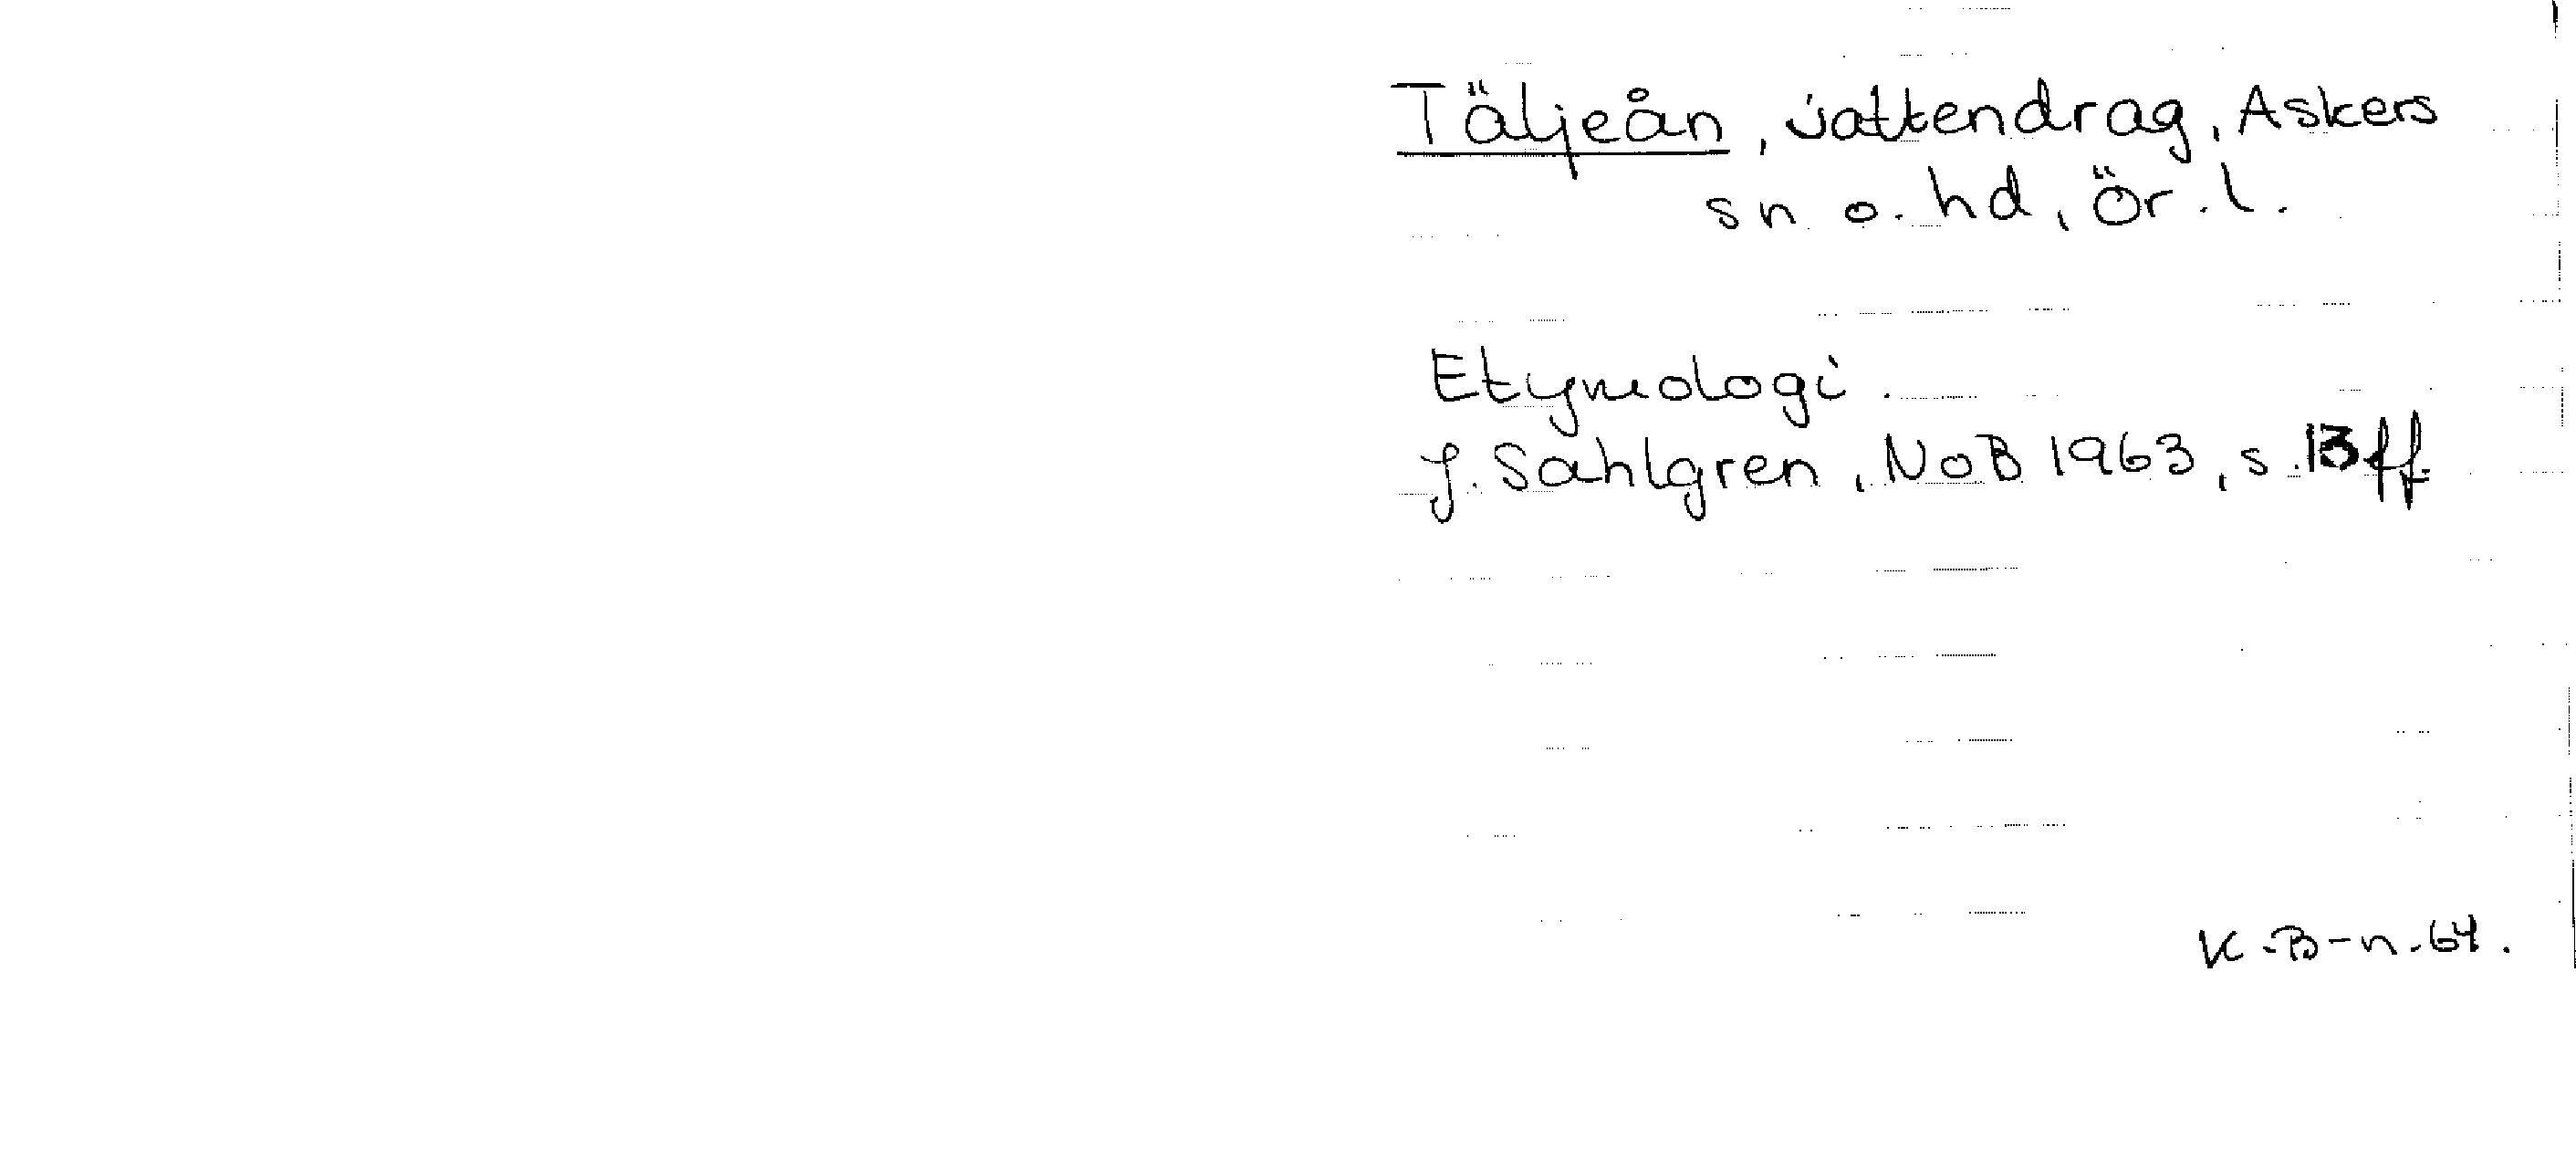 Täljeån, vattendrag, Askers
sn o. hd, Ör. l.
Etymologi.
J. Sahlgren, NoB 1963, s. 13 ff.
K.B-n.64.